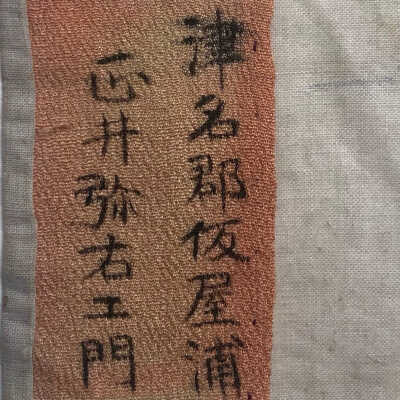 津名郡仮屋浦
正井弥右エ門